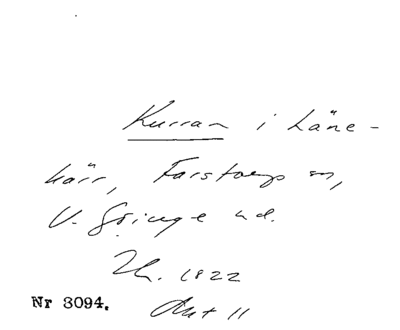 Kurran i Läne-
kärr, Farstorps sn,
V. Göinge hd.
Th. 1822
Nr 3094. Akt 11